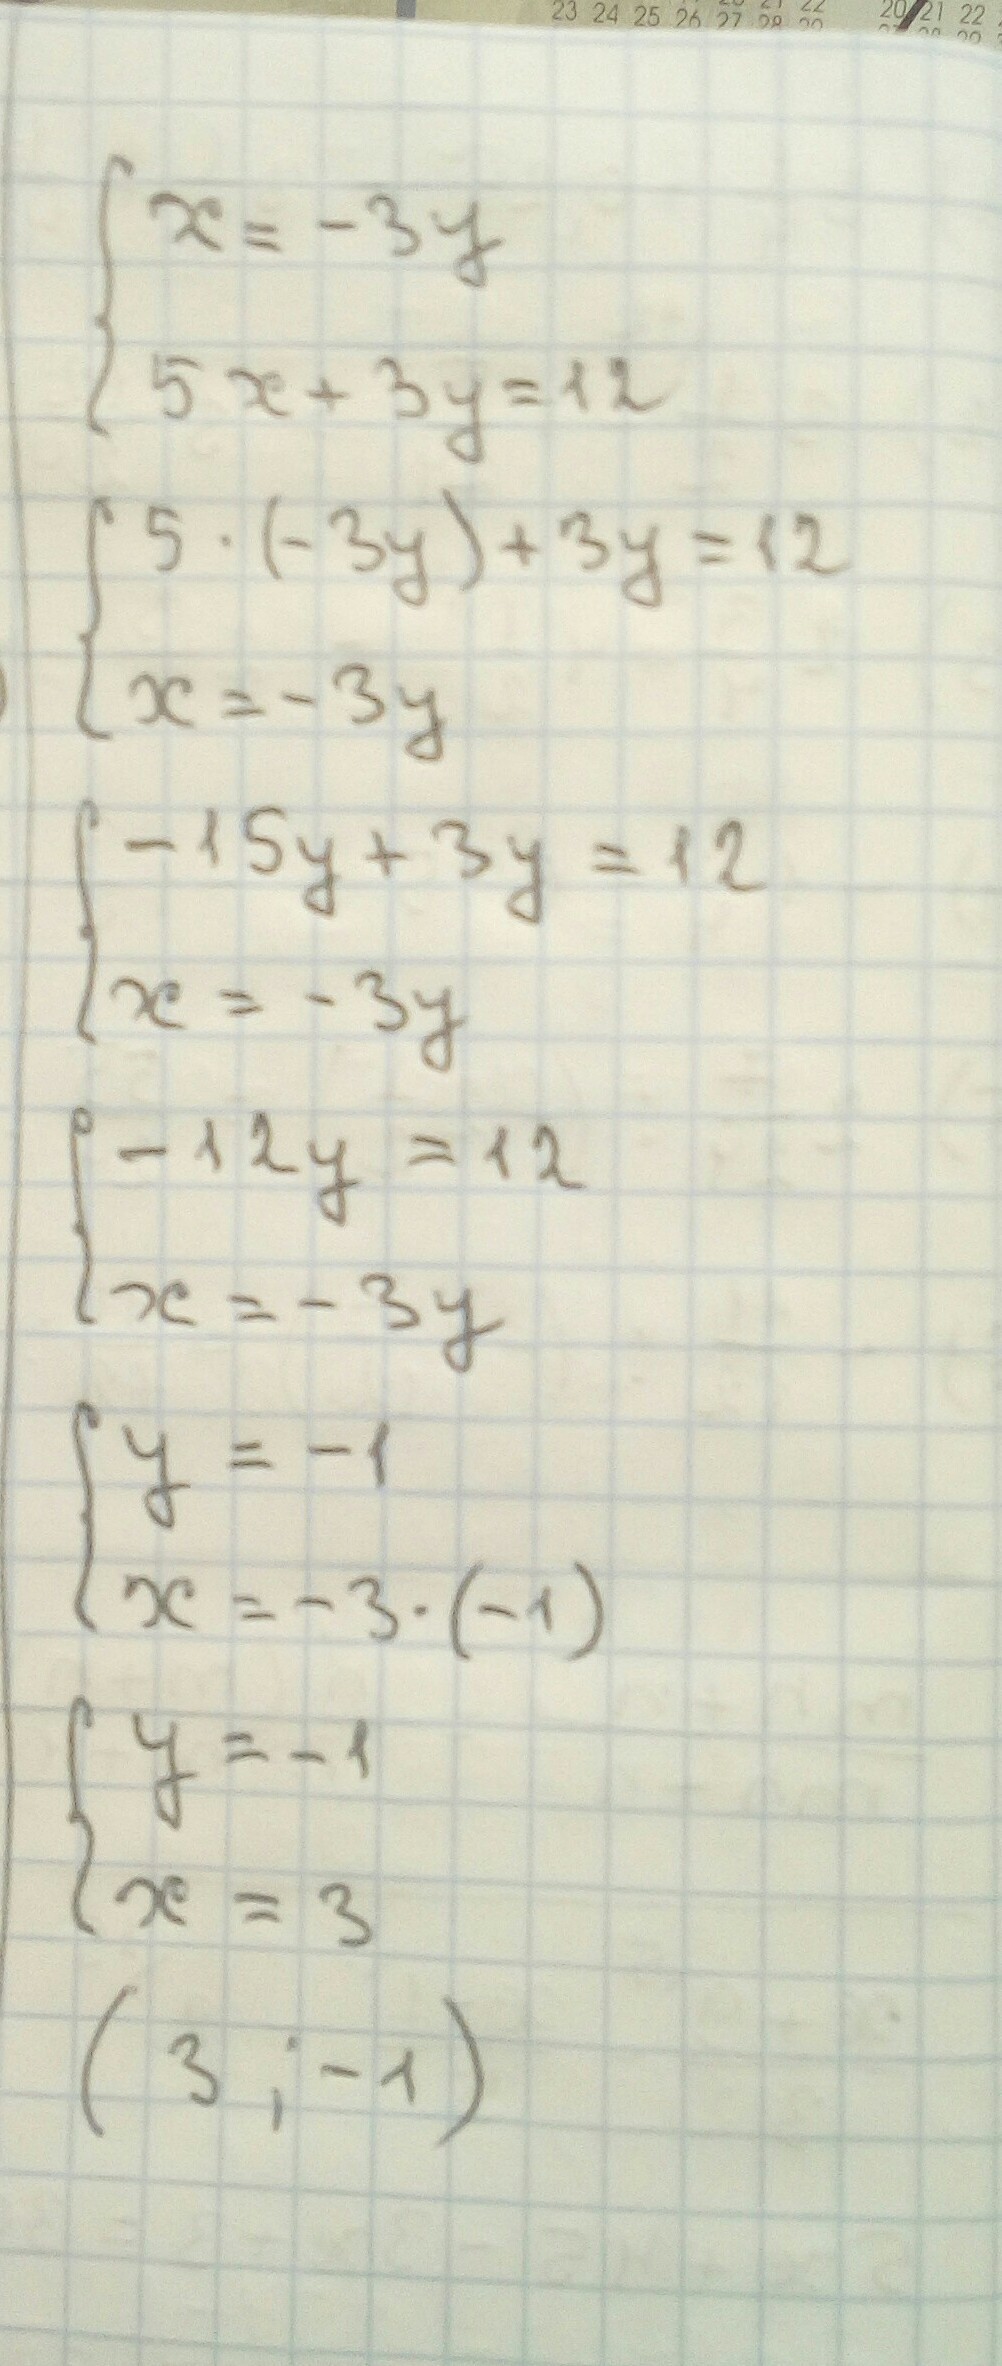 23 24 25 26 27 28 20 21 22
x = -3y
5x + 3y = 12
5 · (-3y) + 3y = 12
x = -3y
-15y + 3y = 12
x = -3y
-12y = 12
x = -3y
y = -1
x = -3 · (-1)
y = -1
x = 3
(3 ; -1)